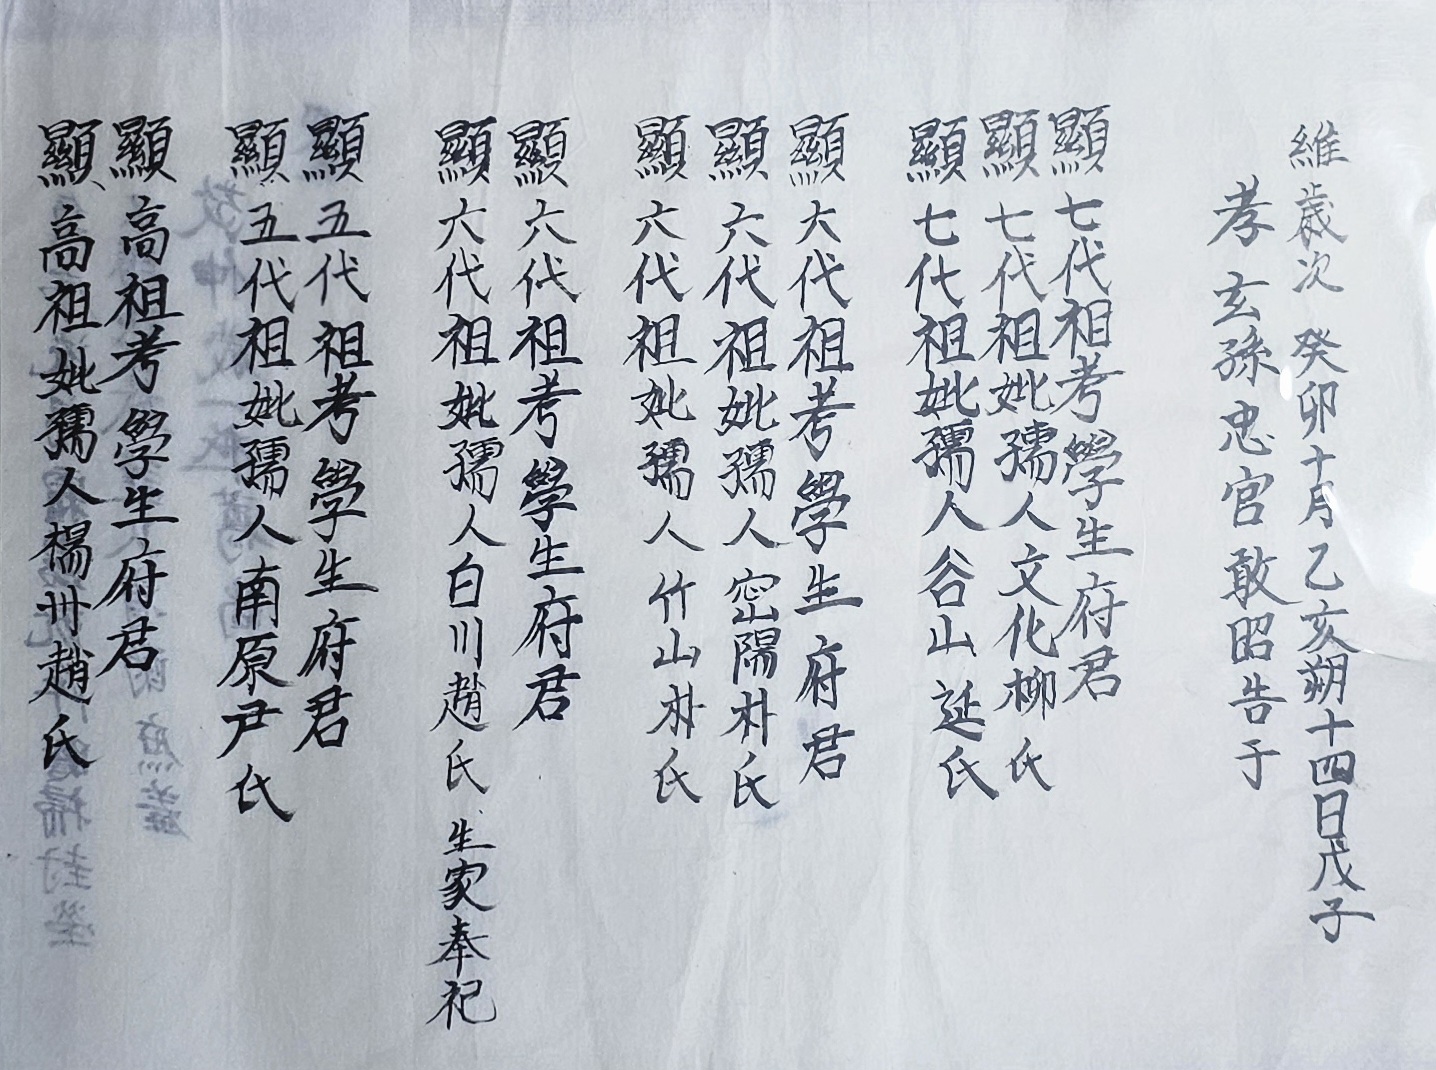 維歲次 癸卯十月乙亥朔十四日戊子
孝玄孫忠官敢昭告于
顯七代祖考學生府君
顯七代祖妣孺人文化柳氏
顯七代祖妣孺人谷山延氏
顯六代祖考學生府君
顯六代祖妣孺人密陽朴氏
顯六代祖妣孺人竹山朴氏
顯六代祖考學生府君
顯六代祖妣孺人白川趙氏 生家奉祀
顯五代祖考學生府君
顯五代祖妣孺人南原尹氏
顯高祖考學生府君
顯高祖妣孺人楊州趙氏